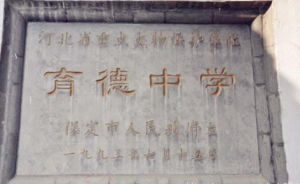 河北省重点文物保护单位
育德中学
保定市人民政府立
一九九三年七月十五日